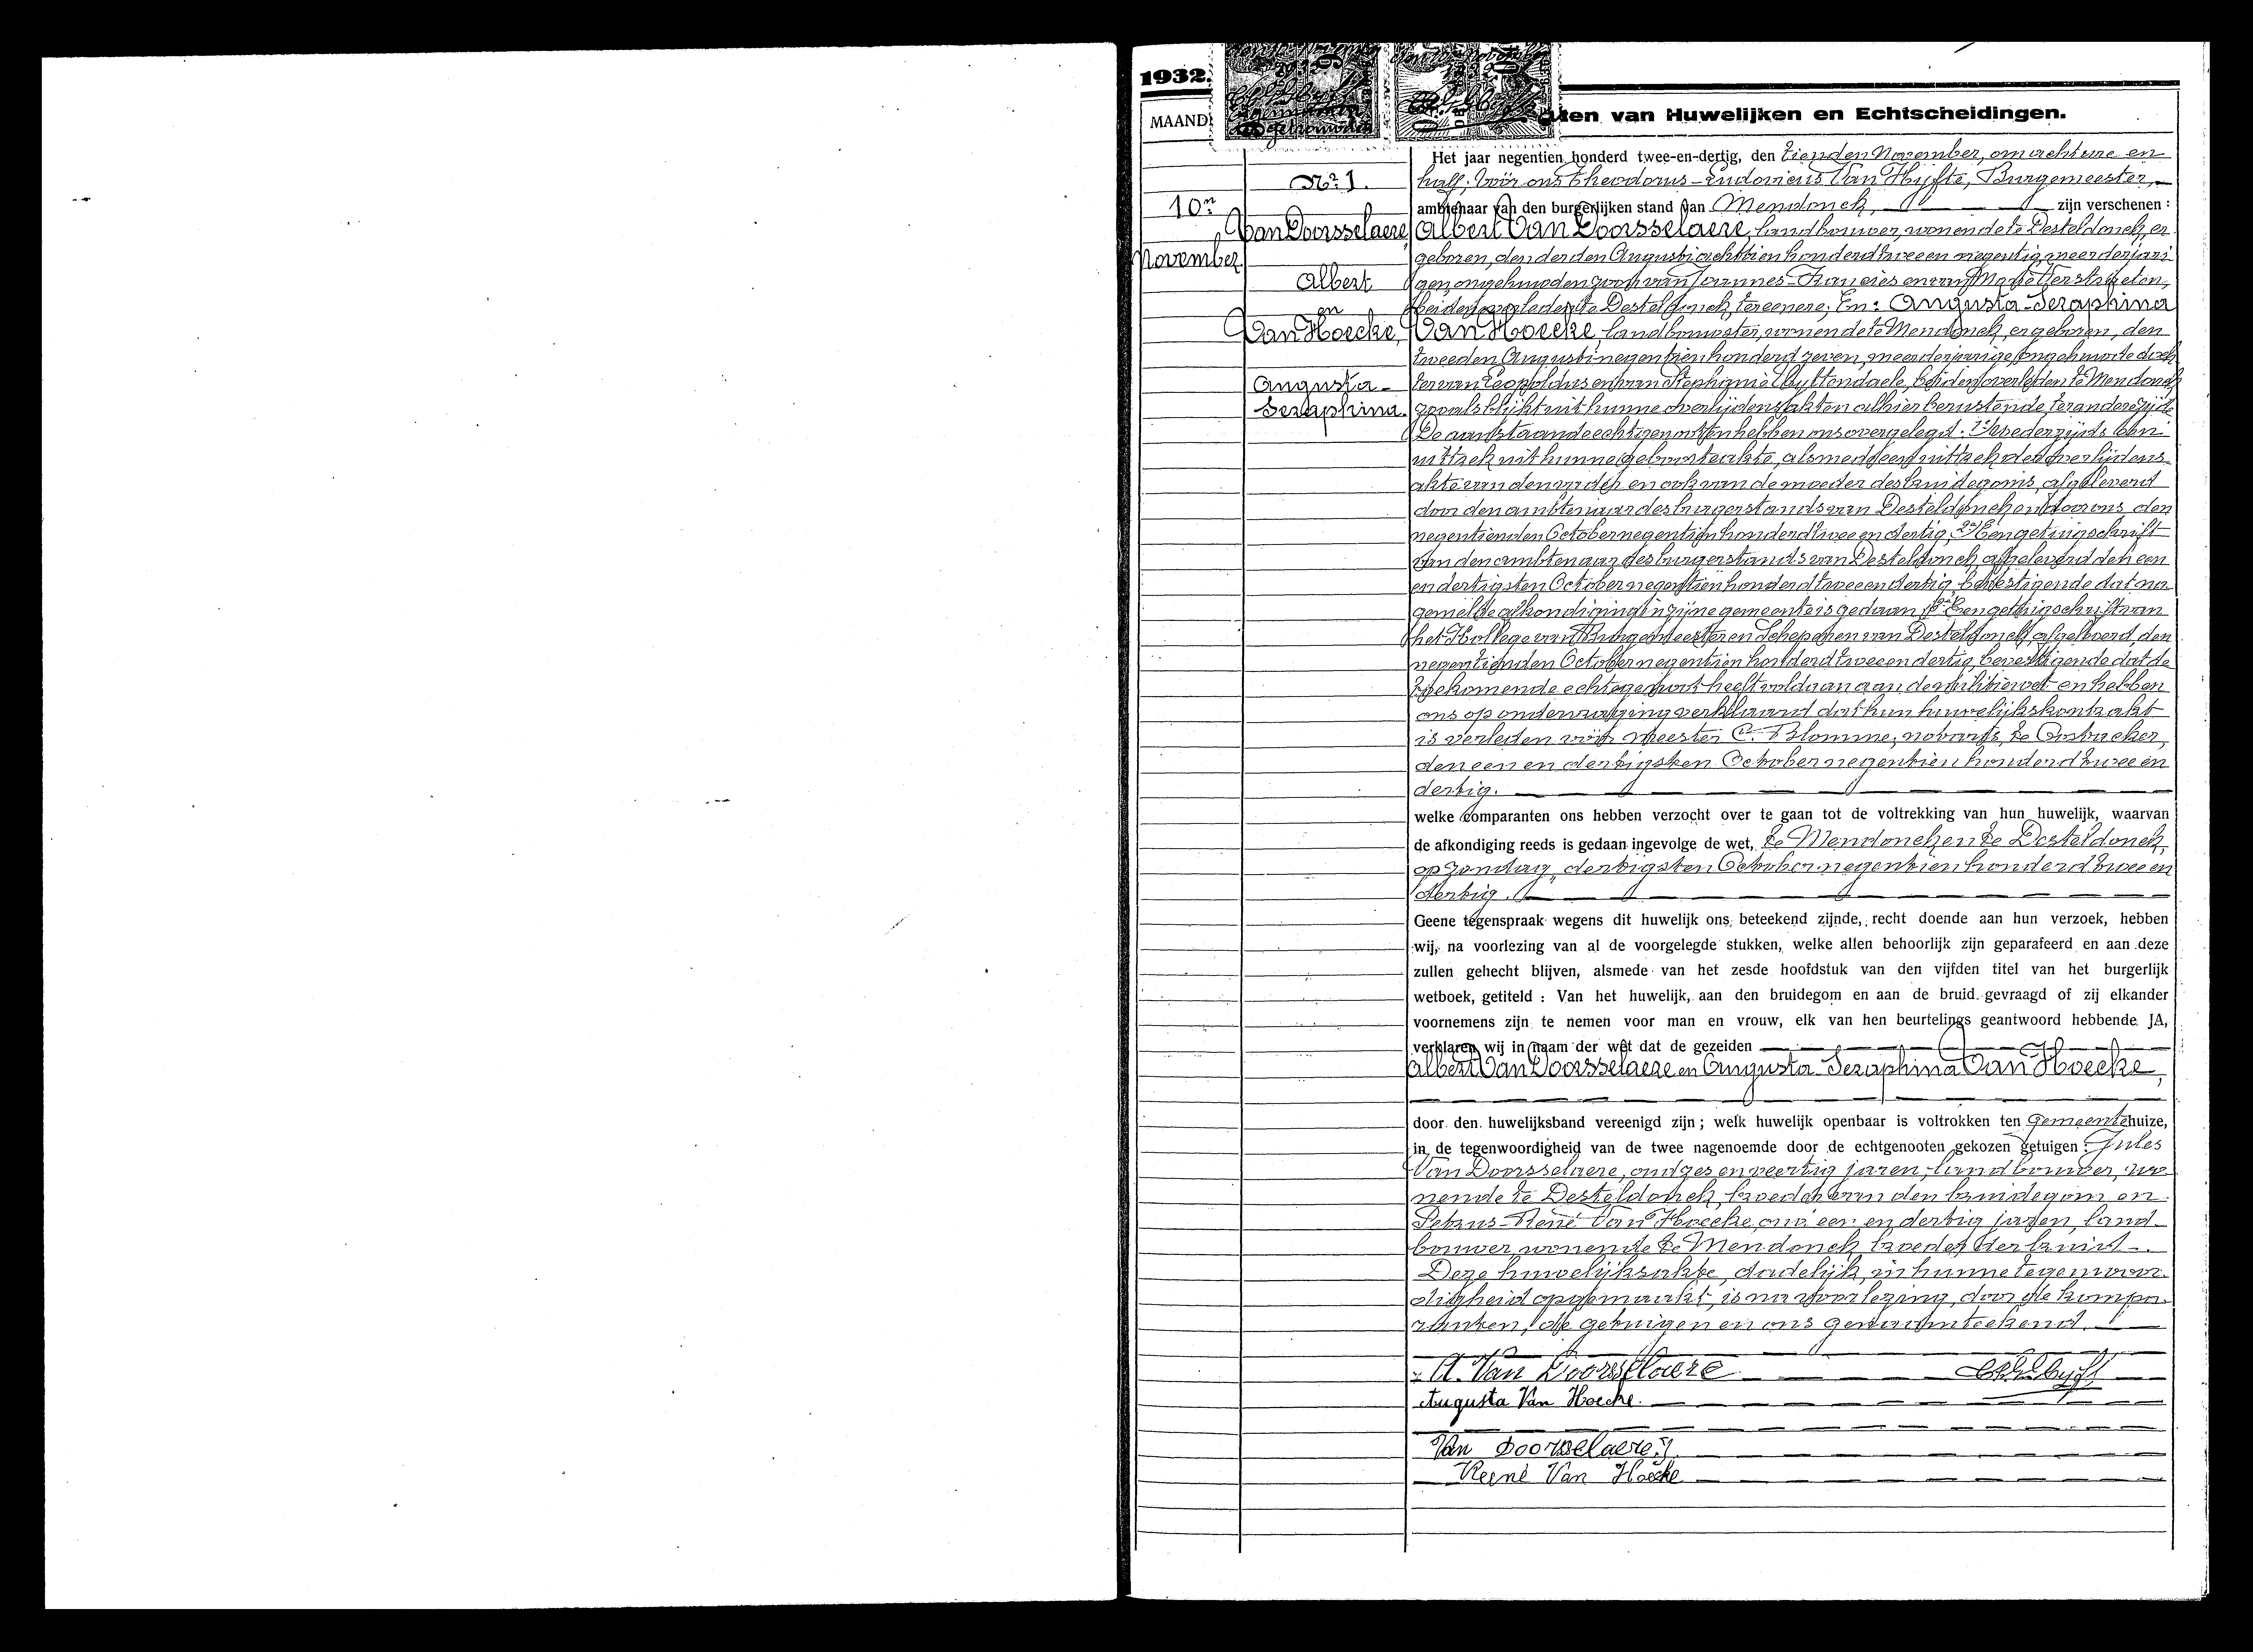 1932.
MAAND
Akten van Huwelijken en Echtscheidingen.
Nr 1.
10n
November
Van Doorsselaere
Albert
en
Van Hoecke,
Augusta-
Seraphina.
Het jaar negentien honderd twee-en-dertig, den tienden November, om acht ure en
half, vóór ons Theodorus-Ludovicus Van Hyfte, Burgemeester,
ambtenaar van den burgerlijken stand van Mendonck, zijn verschenen :
Albert Van Doorsselaere, landbouwer, wonende te Desteldonck, er
geboren, den derden Augusti achttien honderd twee en negentig, meerderjari
gen, ongehuwden zoon van Joannes-Francies en van Marie Verstraeten,
beiden overleden te Desteldonck, ter eenere; En: Augusta-Seraphina
Van Hoecke, landbouwster, wonende te Mendonck, er geboren, den
tweeden Augusti negentien honderd zeven, meerderjarige ongehuwde doch
ter van Leopoldus en van Stephanie Uyttendaele, beiden overleden te Mendonck
zooals blijkt uit hunne overlijdensakten alhier berustende, ter andere zijde
De aanstaande echtgenooten hebben ons overgelegd: 1o Wederzijds een
uittrek uit hunne geboorteakte, alsmede een uittrek der overlijdens
akte van den vader en ook van de moeder des bruidegoms, afgeleverd
door den ambtenaar des burgerstands van Desteldonck en door ons den
negentienden October negentien honderd twee en dertig; 2o Een getuigschrift
van den ambtenaar des burgerstands van Desteldonck, afgeleverd den een
en dertigsten October negentien honderd twee en dertig, bevestigende dat na
gemelde afkondiging in zijne gemeente is gedaan; 3o Een getuigschrift van
het Kollege van Burgemeester en Schepenen van Desteldonck, afgeleverd, den
negentienden October negentien honderd twee en dertig, bevestigende dat de
toekomende echtgenoot heeft voldaan aan de militiewet en hebben
ons op ondervraging verklaard dat hun huwelijkskontrakt
is verleden vóór meester C. Blomme, notaris, te Oostacker,
den een en dertigsten October negentien honderd twee en
dertig.
welke comparanten ons hebben verzocht over te gaan tot de voltrekking van hun huwelijk, waarvan
de afkondiging reeds is gedaan ingevolge de wet, te Mendonck en te Desteldonck,
op Zondag, dertigsten October negentien honderd twee en
dertig.
Geene tegenspraak wegens dit huwelijk ons beteekend zijnde, recht doende aan hun verzoek, hebben
wij, na voorlezing van al de voorgelegde stukken, welke allen behoorlijk zijn geparafeerd en aan deze
zullen gehecht blijven, alsmede van het zesde hoofdstuk van den vijfden titel van het burgerlijk
wetboek, getiteld : Van het huwelijk, aan den bruidegom en aan de bruid gevraagd of zij elkander
voornemens zijn te nemen voor man en vrouw, elk van hen beurtelings geantwoord hebbende JA,
verklaren wij in naam der wet dat de gezeiden
Albert Van Doorsselaere en Augusta-Seraphina Van Hoecke,
door den huwelijksband vereenigd zijn ; welk huwelijk openbaar is voltrokken ten Gemeentehuize,
in de tegenwoordigheid van de twee nagenoemde door de echtgenooten gekozen getuigen : Jules
Van Doorsselaere, oud zes en veertig jaren, landbouwer, wo
nende te Desteldonck, broeder van den bruidegom en
Petrus-René Van Hoecke, oud een en dertig jaren, land
bouwer, wonende te Mendonck broeder der bruid.
Deze huwelijksakte, dadelijk in hunne tegenwoor
digheid opgemaakt, is na voorlezing, door de kompa
ranten, de getuigen en ons genaamteekend.
A. Van Doorsselaere
Augusta Van Hoecke.
Van Doorselaere J.
René Van Hoecke